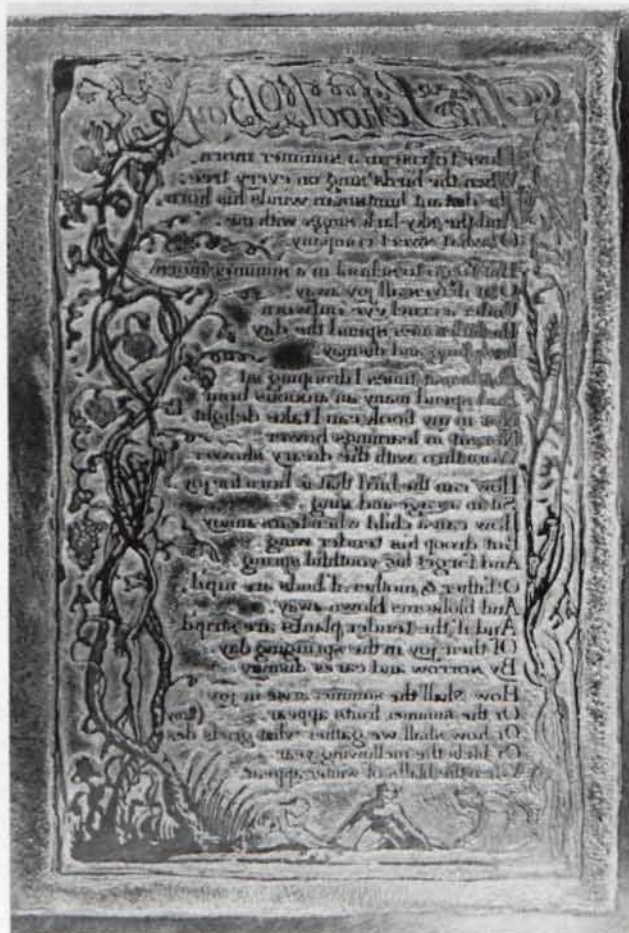 The School Boy
I love to rise in a summer morn,
When the birds sing on every tree;
The distant huntsman winds his horn,
And the sky-lark sings with me.
O what sweet company.
But to go to school in a summer morn
O it drives all joy away
Under a cruel eye outworn
The little ones spend the day
In sighing and dismay.
Ah then at times I drooping sit
And spend many an anxious hour
Nor in my book can I take delight
Nor sit in learnings bower
Worn thro with the dreary shower
How can the bird that is born for joy
Sit in a cage and sing
How can a child when fears annoy
But droop his tender wing
And forget his youthful spring
O father & mother if buds are nip'd,
And blossoms blown away
And if the tender plants are strip'd
Of their joy in the springing day
By sorrow and cares dismay
How shall the summer arise in joy
Or the summer fruits appear (troy
Or how shall we gather what griefs des
Or bless the mellowing year
When the blasts of winter appear.